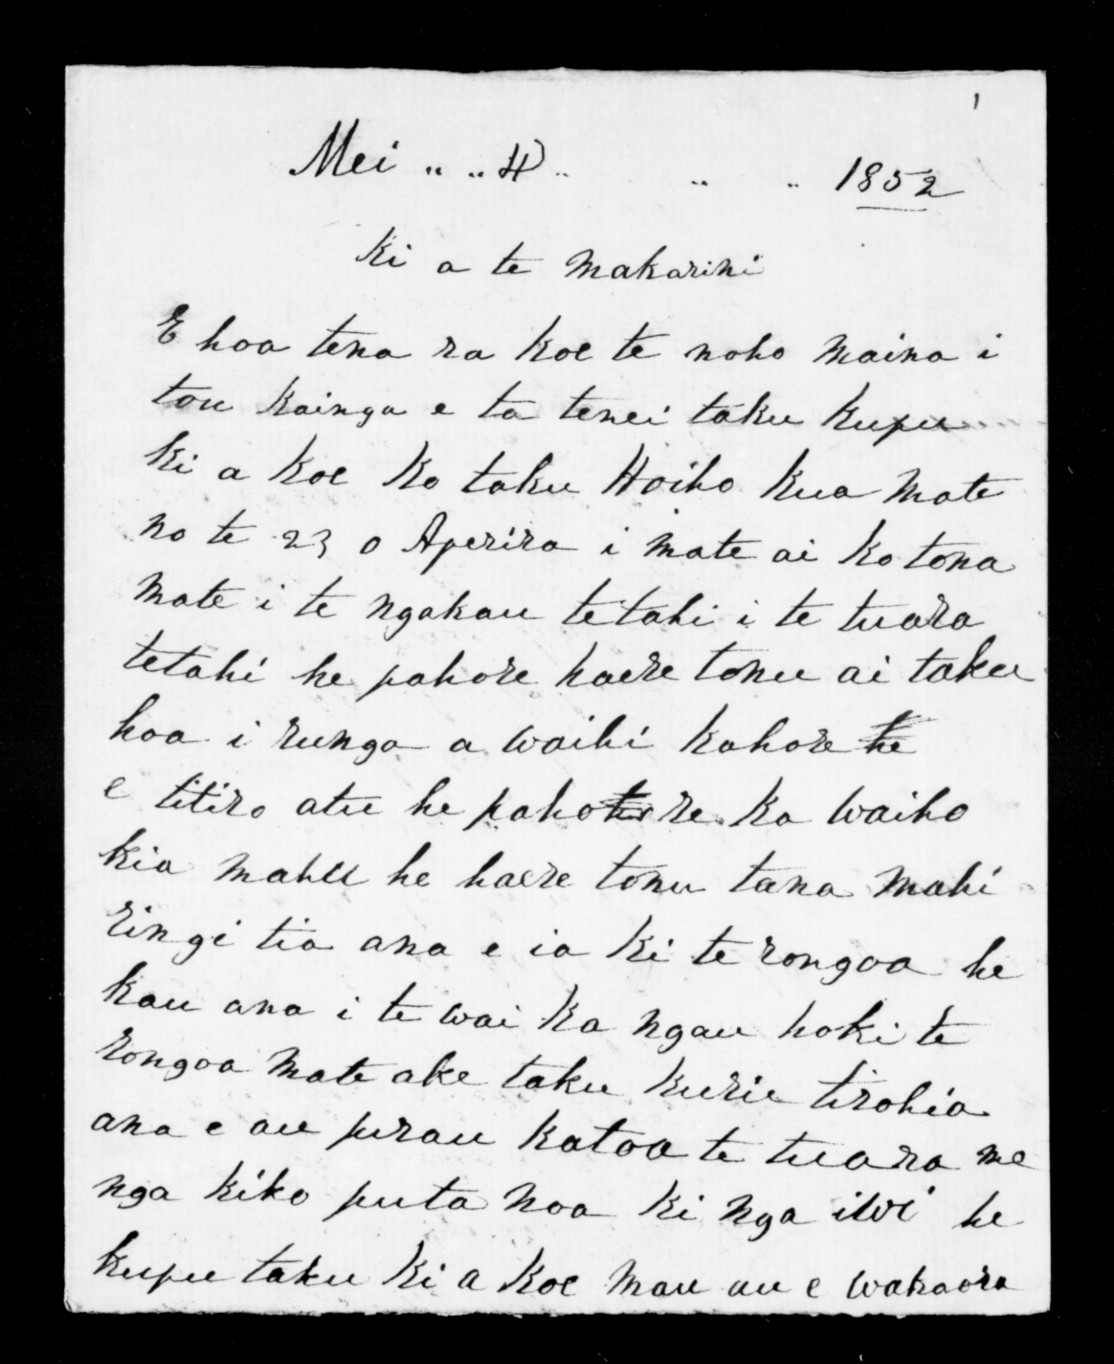 1
Mei " " 4 " " " 1852
Ki a te Makarini
E hoa tena ra koe te noho maina i
tou kainga e ta tenei taku kupu
ki a koe ko taku Hoiho kua mate
no te 23 o Aperira i mate ai ko tona
mate i te ngakau tetahi i te tuara
tetahi he pahore haere tonu ai taku
hoa i runga a waihi kahore he
e titiro atu he pahorere ka waiho
kia mahu he haere tonu tana mahi
ringi tia ana e ia ki te rongoa he
kau ana i te wai ka ngau hoki te
rongoa mate ake taku kurie tirohia
ana e au purau katoa te tuara me
nga kiko puta noa ki nga iwi he
kupu taku ki a koe mau au e wakaora